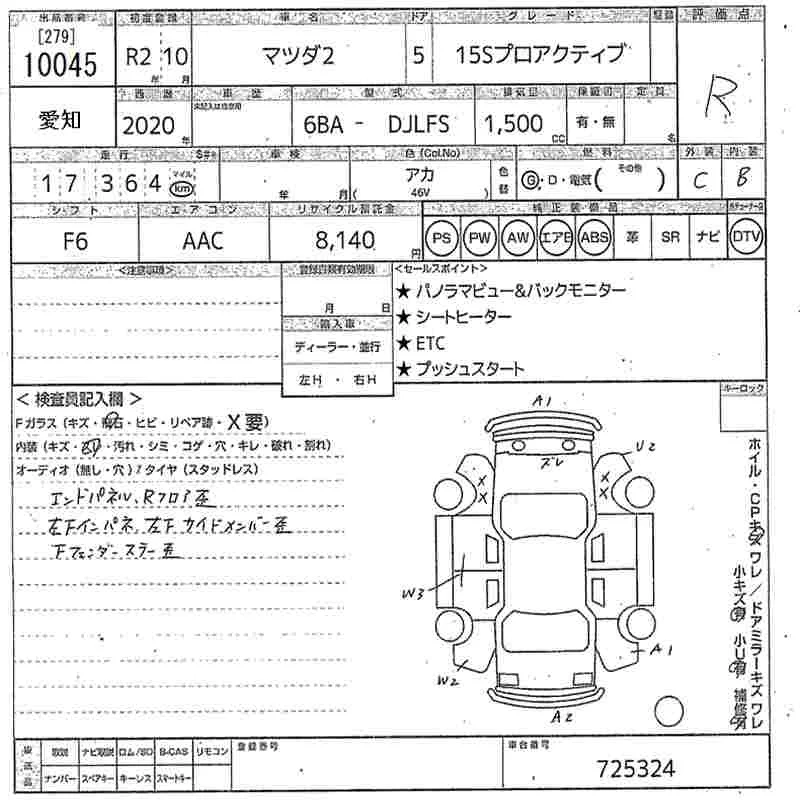 出品番号 初度登録 車名 ドア グレード 評価点
[279]
10045 R2 10 マツダ2 5 15Sプロアクティブ R
年 月
西暦 車歴 型式 排気量 保証書 定員
愛知 2020年 6BA - DJLFS 1,500 CC 有・無 名
走行 車検 色(Col.No) 燃料 外装 内装
17364 マイル km 年 月 アカ 46V 色替 G・D・電気( その他 ) C B
シフト エアコン リサイクル預託金 純正装備品
F6 AAC 8,140 円 PS PW AW エアB ABS 革 SR ナビ DTV
<注意事項> 登録書類有効期限 <セールスポイント>
月 日
★ パノラマビュー&バックモニター
★ シートヒーター
★ ETC
★ プッシュスタート
輸入車
ディーラー・並行
左H ・ 右H
<検査員記入欄> ルーロック
Fガラス(キズ・飛石・ヒビ・リペア跡・X要)
内装(キズ・・汚れ・シミ・コゲ・穴・キレ・破れ・割れ)
オーディオ(無し・穴)/タイヤ(スタッドレス)
エンドパネル、Rフロア歪
左下インパネ、左下サイドメンバー歪
下フェンダーステー歪
A1
ズレ
U2
X X
X X
W3
W2
A1
A2
ホイル・CPキズワレ/ドアミラーキズワレ
小キズ有 小U有 補修有
取説 ナビ取説 ロム/SD B-CAS リモコン 登録番号 車台番号
ナンバー スペアキー キーレス スマートキー 725324